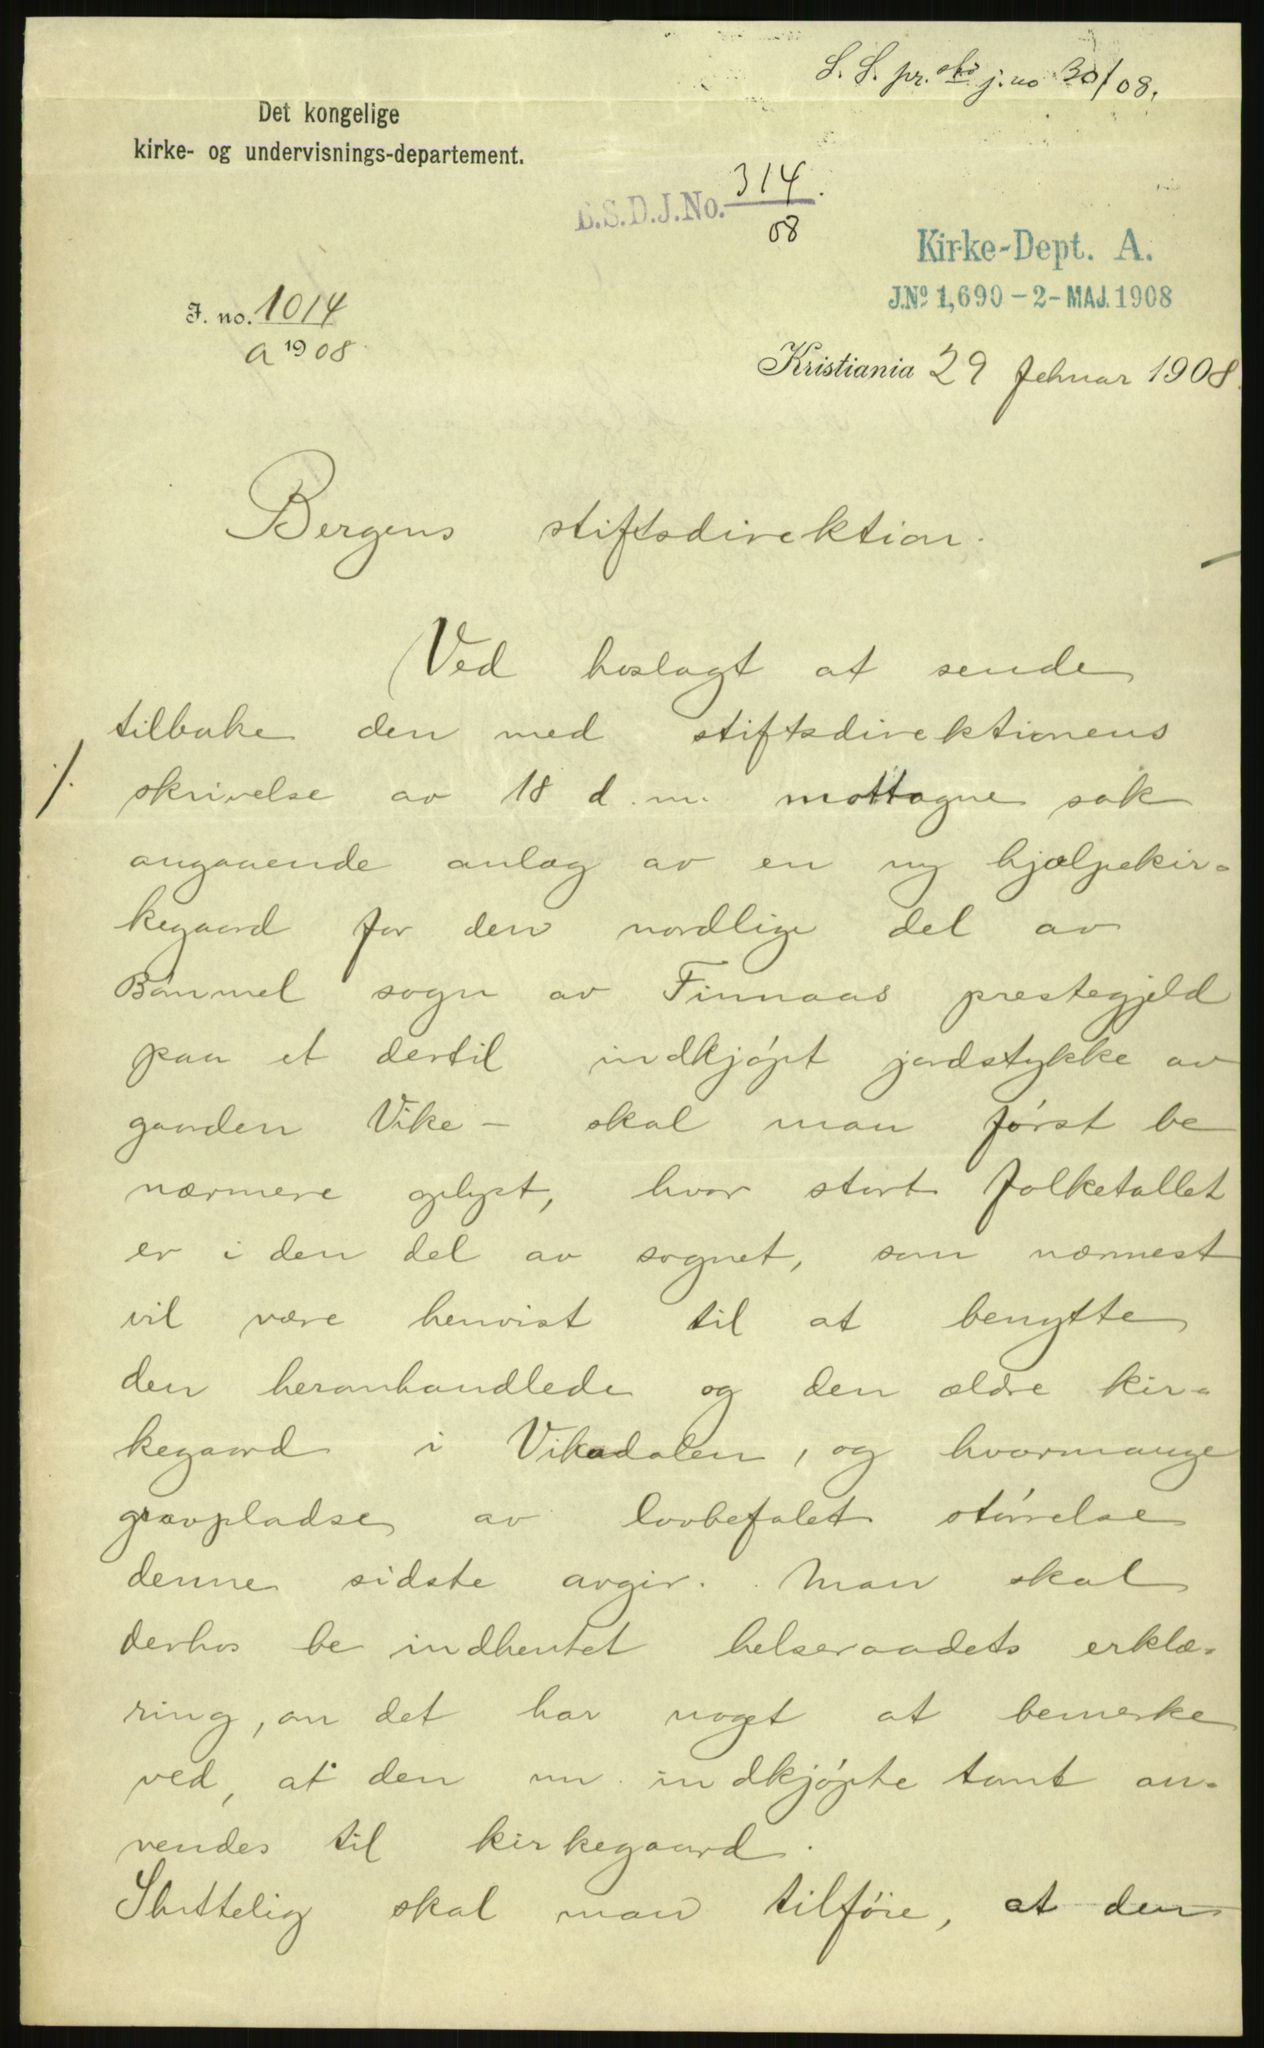 S. S. pr. j. no 30/08.
Det kongelige
kirke- og undervisnings-departement.
B.S.D.J.No. 314
08
Kirke-Dept. A.
J.Nº 1,690 - 2- MAJ. 1908
J. no. 1014
a 1908
Kristiania 29 februar 1908.
Bergens stiftsdirektion.
Ved hoslagt at sende
tilbake den med stiftsdirektionens
./. skrivelse av 18 d. m. mottagne sak
angaaende anlæg av en ny hjælpekir-
kegaard for den nordlige del av
Bømmel sogn av Finnaas prestegjeld
paa et dertil indkjøpt jordstykke av
gaarden Vike - skal man først be
nærmere oplyst, hvor stort folketallet
er i den del av sognet, som nærmest
vil være henvist til at benytte
den heromhandlede og den ældre kir-
kegaard i Vikadalen, og hvormange
gravpladse av lovbefalet størrelse
denne sidste avgir. Man skal
derhos be indhentet helseraadets erklæ-
ring, om det har noget at bemerke
ved, at den nu indkjøpte tomt an-
vendes til kirkegaard.
Sluttelig skal man tilføie, at den